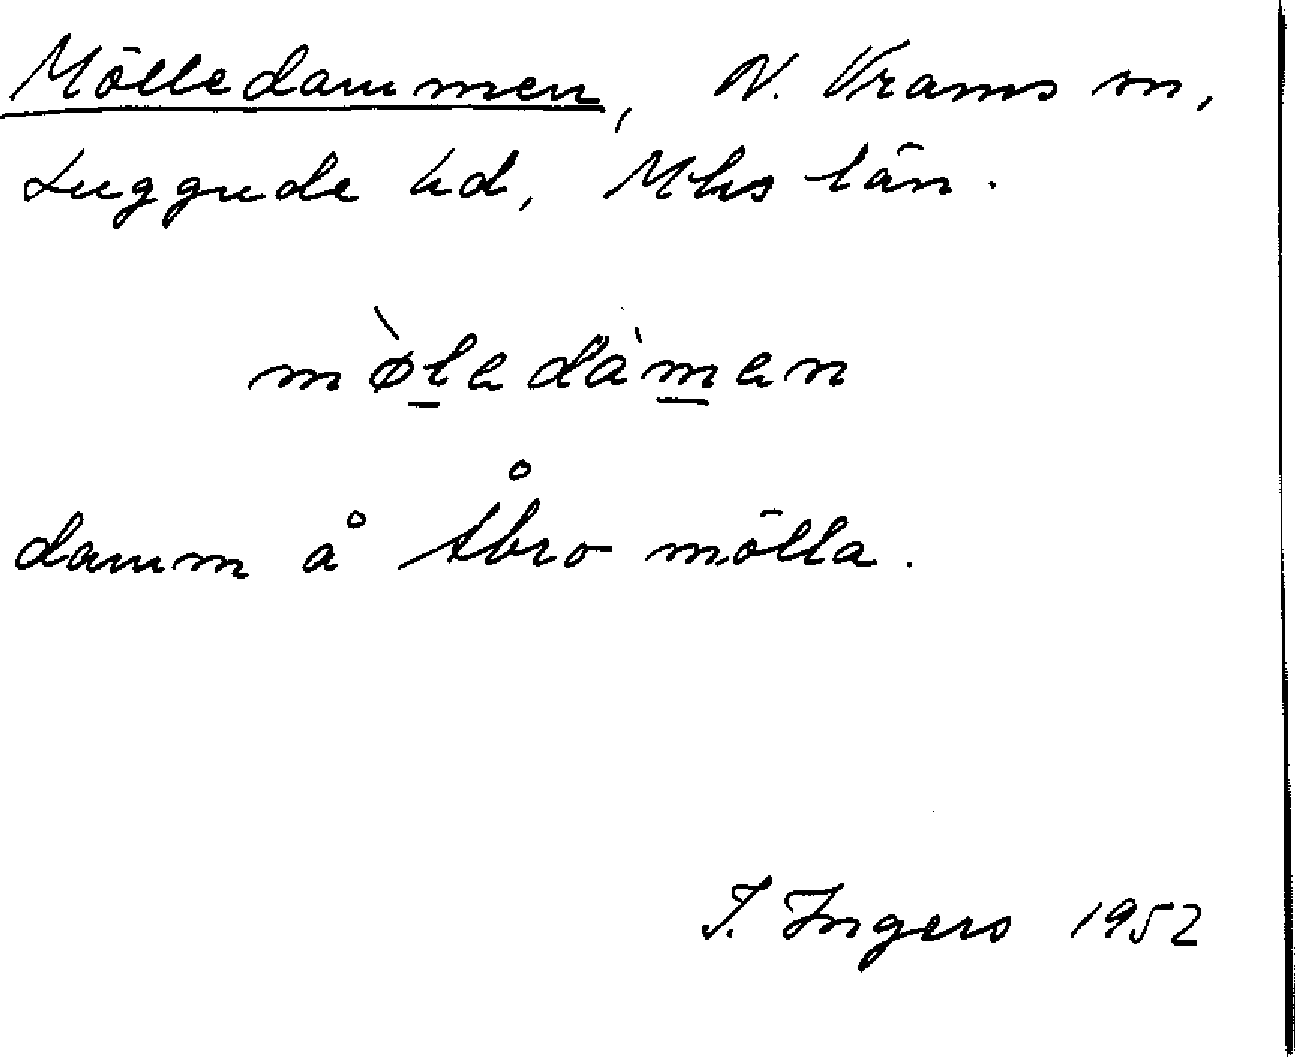 Mölledammen, N. Vrams sn,
Luggude hd, Mhs län.
mø̀l̲adȁm̲an
damm å Åbro mölla.
I. Ingers 1952